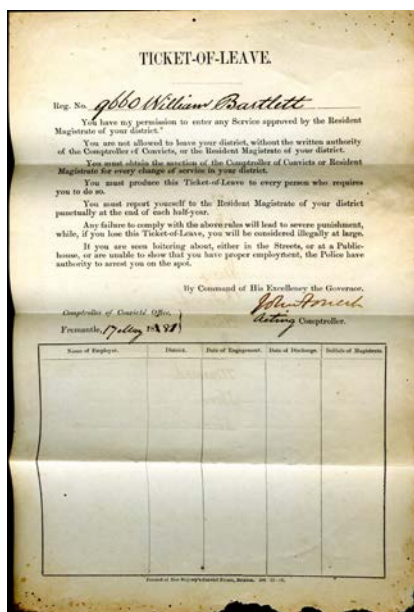 TICKET-OF-LEAVE.
Reg. No. 9660 William Bartlett
You have my permission to enter any Service approved by the Resident
Magistrate of your district.
You are not allowed to leave your district, without the written authority
of the Comptroller of Convicts, or the Resident Magistrate of your district.
You must obtain the sanction of the Comptroller of Convicts or Resident
Magistrate for every change of service in your district.
You must produce this Ticket-of-Leave to every person who requires
you to do so.
You must report yourself to the Resident Magistrate of your district
punctually at the end of each half-year.
Any failure to comply with the above rules will lead to severe punishment,
while, if you lose this Ticket-of-Leave, you will be considered illegally at large.
If you are seen loitering about, either in the Streets, or at a Public-
house, or are unable to show that you have proper employment, the Police have
authority to arrest you on the spot.
By Command of His Excellency the Governor.
John
Comptroller of Convicts' Office, Acting Comptroller.
Fremantle, 17 May 1881
Name of Employer. District. Date of Engagement. Date of Discharge. Initials of Magistrate
Printed at Her Majesty's Convict Prison,